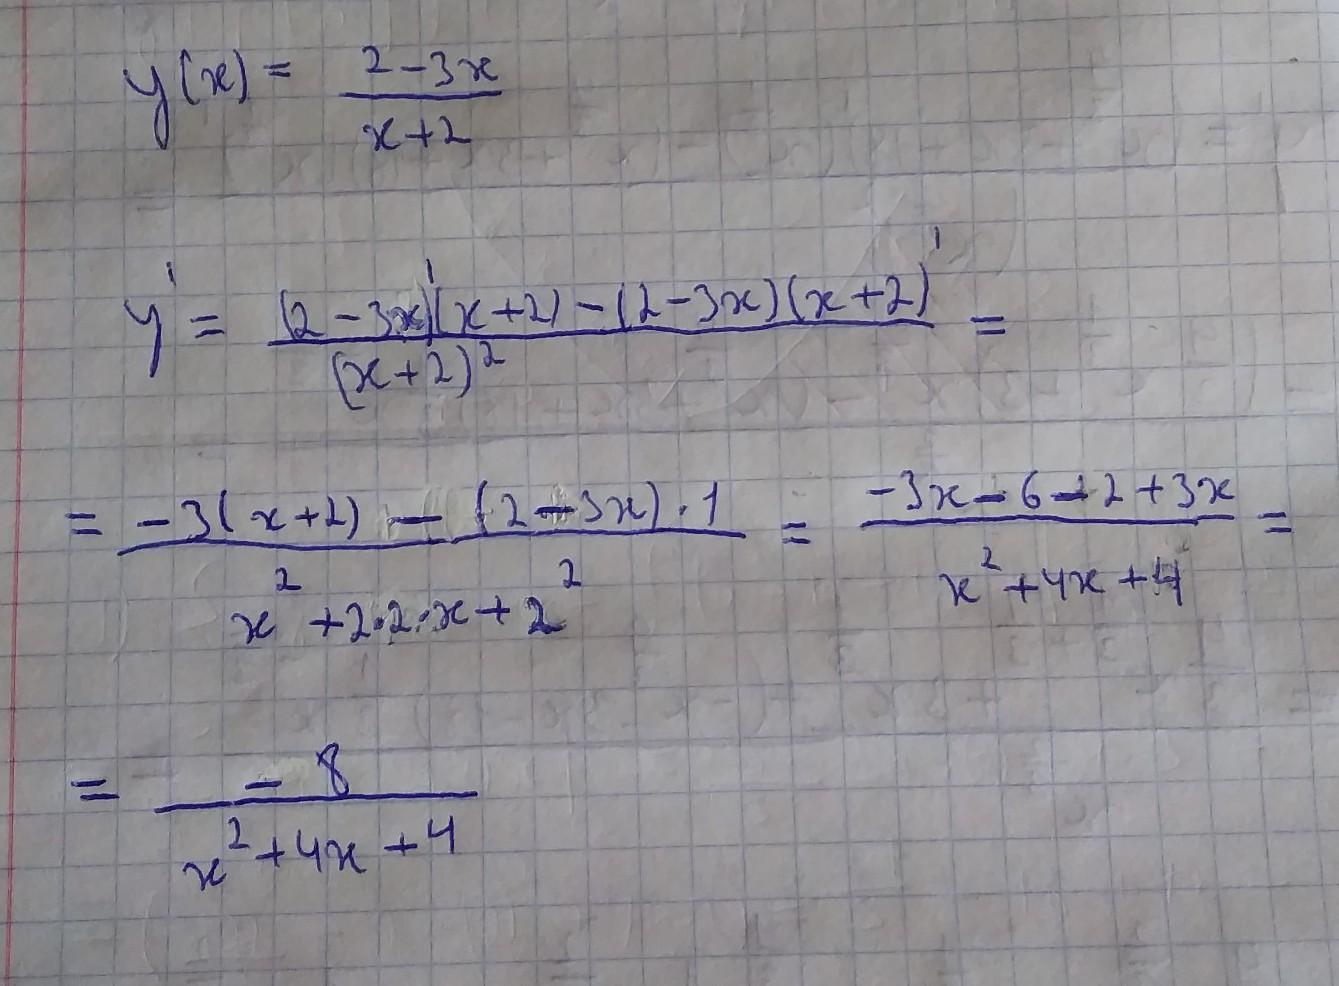 y(x) = (2-3x)/(x+2)
y' = ((2-3x)'(x+2)-(2-3x)(x+2)')/(x+2)² =
= (-3(x+2)-(2-3x)·1)/(x²+2·2·x+2²) = (-3x-6-2+3x)/(x²+4x+4) =
= (-8)/(x²+4x+4)